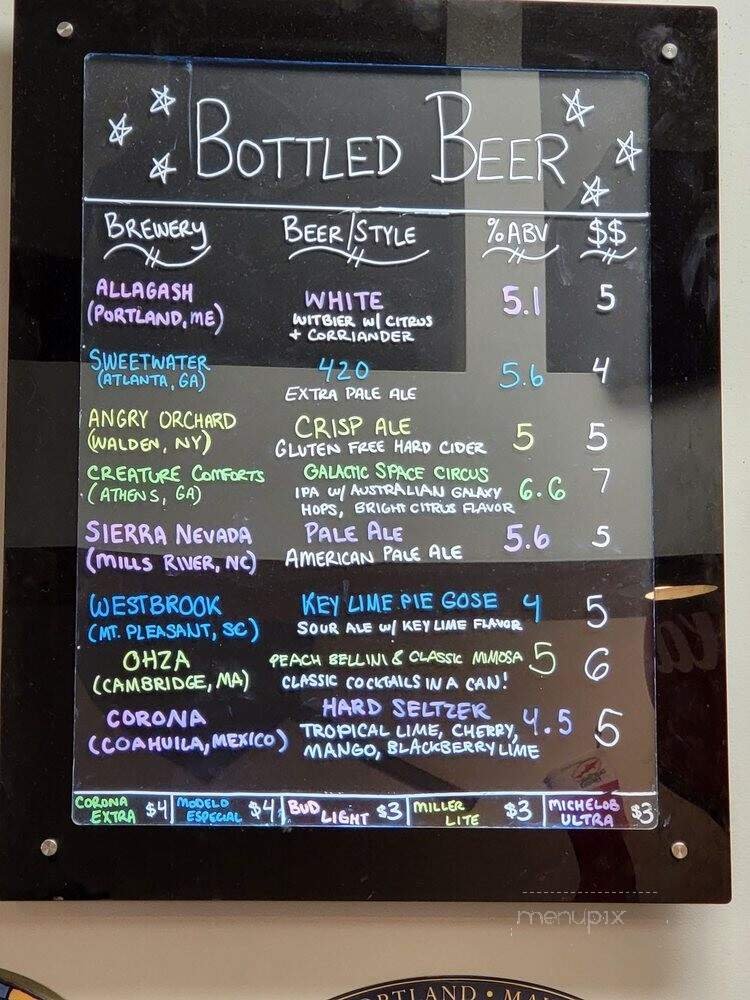 BOTTLED BEER
BREWERY BEER/STYLE %ABV $$
ALLAGASH WHITE 5.1 5
(PORTLAND, ME) WITBIER W/ CITRUS
+ CORRIANDER
SWEETWATER 420 5.6 4
(ATLANTA, GA) EXTRA PALE ALE
ANGRY ORCHARD CRISP ALE 5 5
(WALDEN, NY) GLUTEN FREE HARD CIDER
CREATURE COMFORTS GALACTIC SPACE CIRCUS 6.6 7
(ATHENS, GA) IPA W/ AUSTRALIAN GALAXY
HOPS, BRIGHT CITRUS FLAVOR
SIERRA NEVADA PALE ALE 5.6 5
(MILLS RIVER, NC) AMERICAN PALE ALE
WESTBROOK KEY LIME PIE GOSE 4 5
(MT. PLEASANT, SC) SOUR ALE W/ KEY LIME FLAVOR
OHZA PEACH BELLINI & CLASSIC MIMOSA 5 6
(CAMBRIDGE, MA) CLASSIC COCKTAILS IN A CAN!
CORONA HARD SELTZER 4.5 5
(COAHUILA, MEXICO) TROPICAL LIME, CHERRY,
MANGO, BLACKBERRY LIME
CORONA EXTRA $4 MODELO ESPECIAL $4 BUD LIGHT $3 MILLER LITE $3 MICHELOB ULTRA $3
menupix